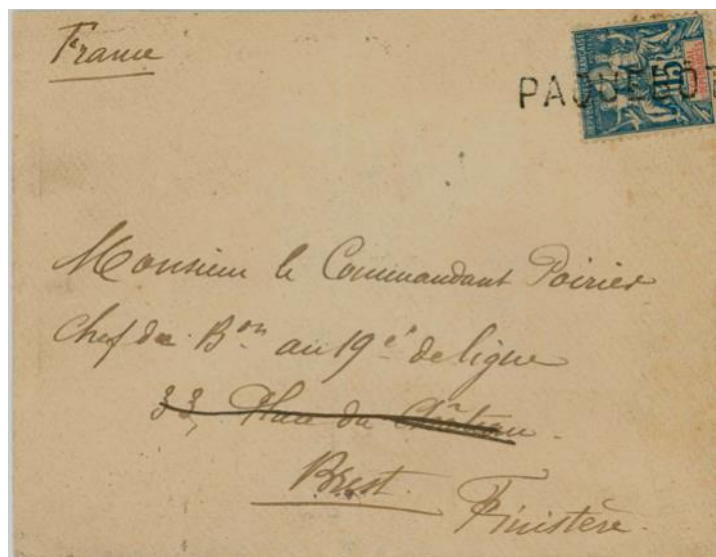 France
PAQUEBOT
15
Monsieur le Commandant Poirier
Chef de B.on au 19e de ligne
33, Place du Château.
Brest.
Finistère.